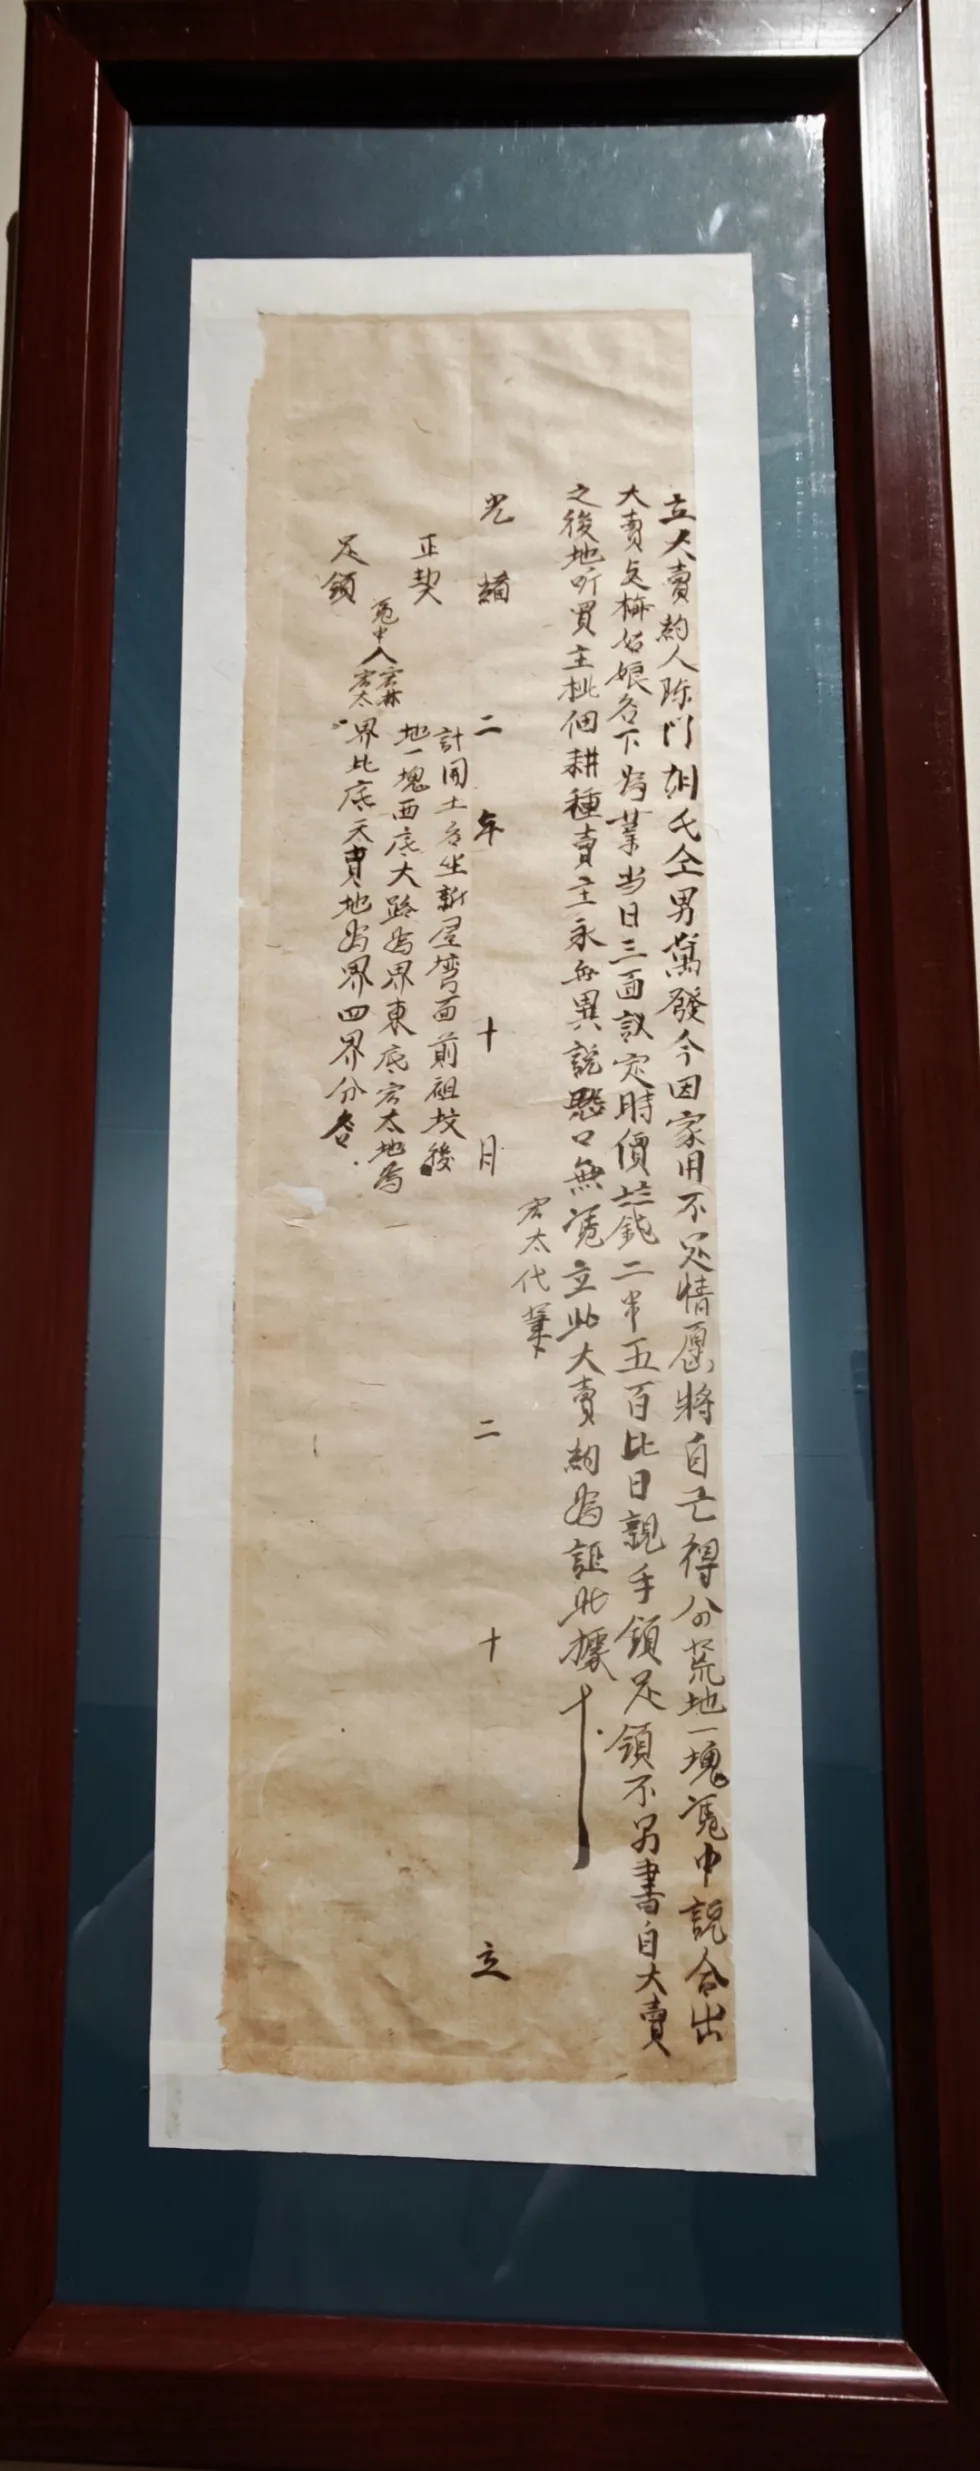 立大賣約人陈門胡氏仝男萬發今因家用不足情愿將自己得分荒地一塊凴中説合出
大賣与梅姑娘名下為業当日三面議定時價錢二串五百比日親手領足領不另書自大賣
之後地听買主批佃耕種賣主永無異説恐口無凴立此大賣約為証此據
宏太代筆
光緒二年十月二十立
計開土名坐新屋塆面前祖坟後
地一塊西底大路為界東底宏太地為
界北底天賣地為界四界分名
正契
凴中人宏林
宏太
足領